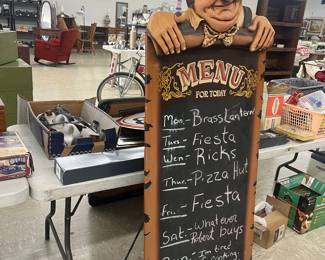 MENU
FOR TODAY
Mon - Brass Lantern
Tues - Fiesta
Wen - Ricks
Thur - Pizza Hut
Fri - Fiesta
Sat - Whatever
Robert buys
I'm tired